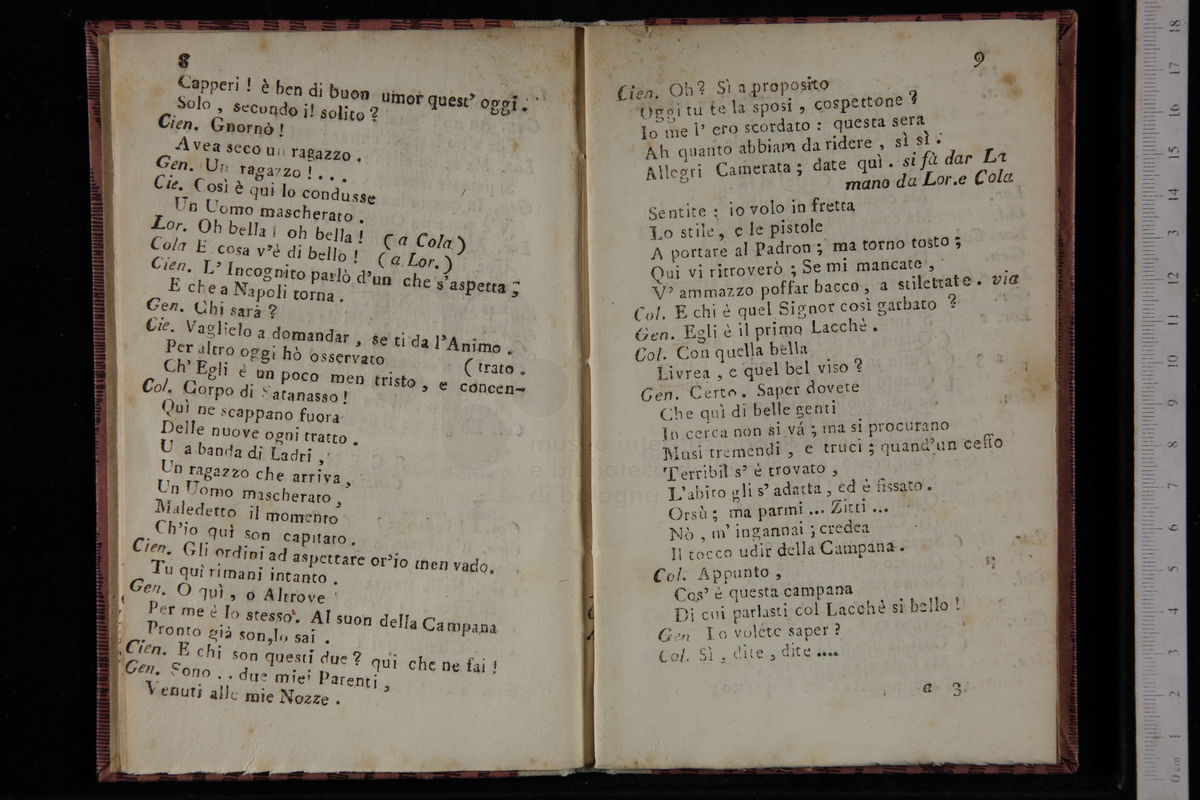 8
Capperi ! è ben di buon umor quest' oggi.
Solo , secondo il solito ?
Cien. Gnornò !
Avea seco un ragazzo .
Gen. Un ragazzo ! . . .
Cie. Così è qui lo condusse
Un Uomo mascherato .
Lor. Oh bella ! oh bella ! ( a Cola )
Cola E cosa v'è di bello ! ( a Lor. )
Cien. L' Incognito parlò d'un che s'aspetta ;
E che a Napoli torna .
Gen. Chi sarà ?
Cie. Vaglielo a domandar , se ti da l'Animo .
Per altro oggi hò osservato ( trato .
Ch' Egli è un poco men tristo , e concen-
Col. Corpo di Satanasso !
Quì ne scappano fuora
Delle nuove ogni tratto .
U a banda di Ladri ,
Un ragazzo che arriva ,
Un Uomo mascherato ,
Maledetto il momento
Ch'io quì son capitato .
Cien. Gli ordini ad aspettare or'io men vado.
Tu quì rimani intanto .
Gen. O quì , o Altrove
Per me è lo stesso. Al suon della Campana
Pronto già son, lo sai .
Cien. E chi son questi due ? quì che ne fai !
Gen. Sono . . due miei Parenti ,
Venuti alle mie Nozze .
9
Cien. Oh ? Sì a proposito
Oggi tu te la sposi , cospettone ?
Io me l' ero scordato : questa sera
Ah quanto abbiam da ridere , sì sì .
Allegri Camerata ; date quì . si fà dar La
mano da Lor.e Cola
Sentite : io volo in fretta
Lo stile , e le pistole
A portare al Padron ; ma torno tosto ;
Qui vi ritroverò ; Se mi mancate ,
V' ammazzo poffar bacco , a stilettate . via
Col. E chi è quel Signor così garbato ?
Gen. Egli è il primo Lacchè .
Col. Con quella bella
Livrea , e quel bel viso ?
Gen. Certo . Saper dovete
Che quì di belle genti
In cerca non si và ; ma si procurano
Musi tremendi , e truci ; quand'un ceffo
Terribil s' è trovato ,
L'abito gli s' adatta , ed è fissato .
Orsù ; ma parmi ... Zitti ...
Nò , m' ingannai ; credea
Il tocco udir della Campana .
Col. Appunto ,
Cos' è questa campana
Di cui parlasti col Lacchè sì bello !
Gen Lo volete saper ?
Col. Sì , dite , dite ....
a 3